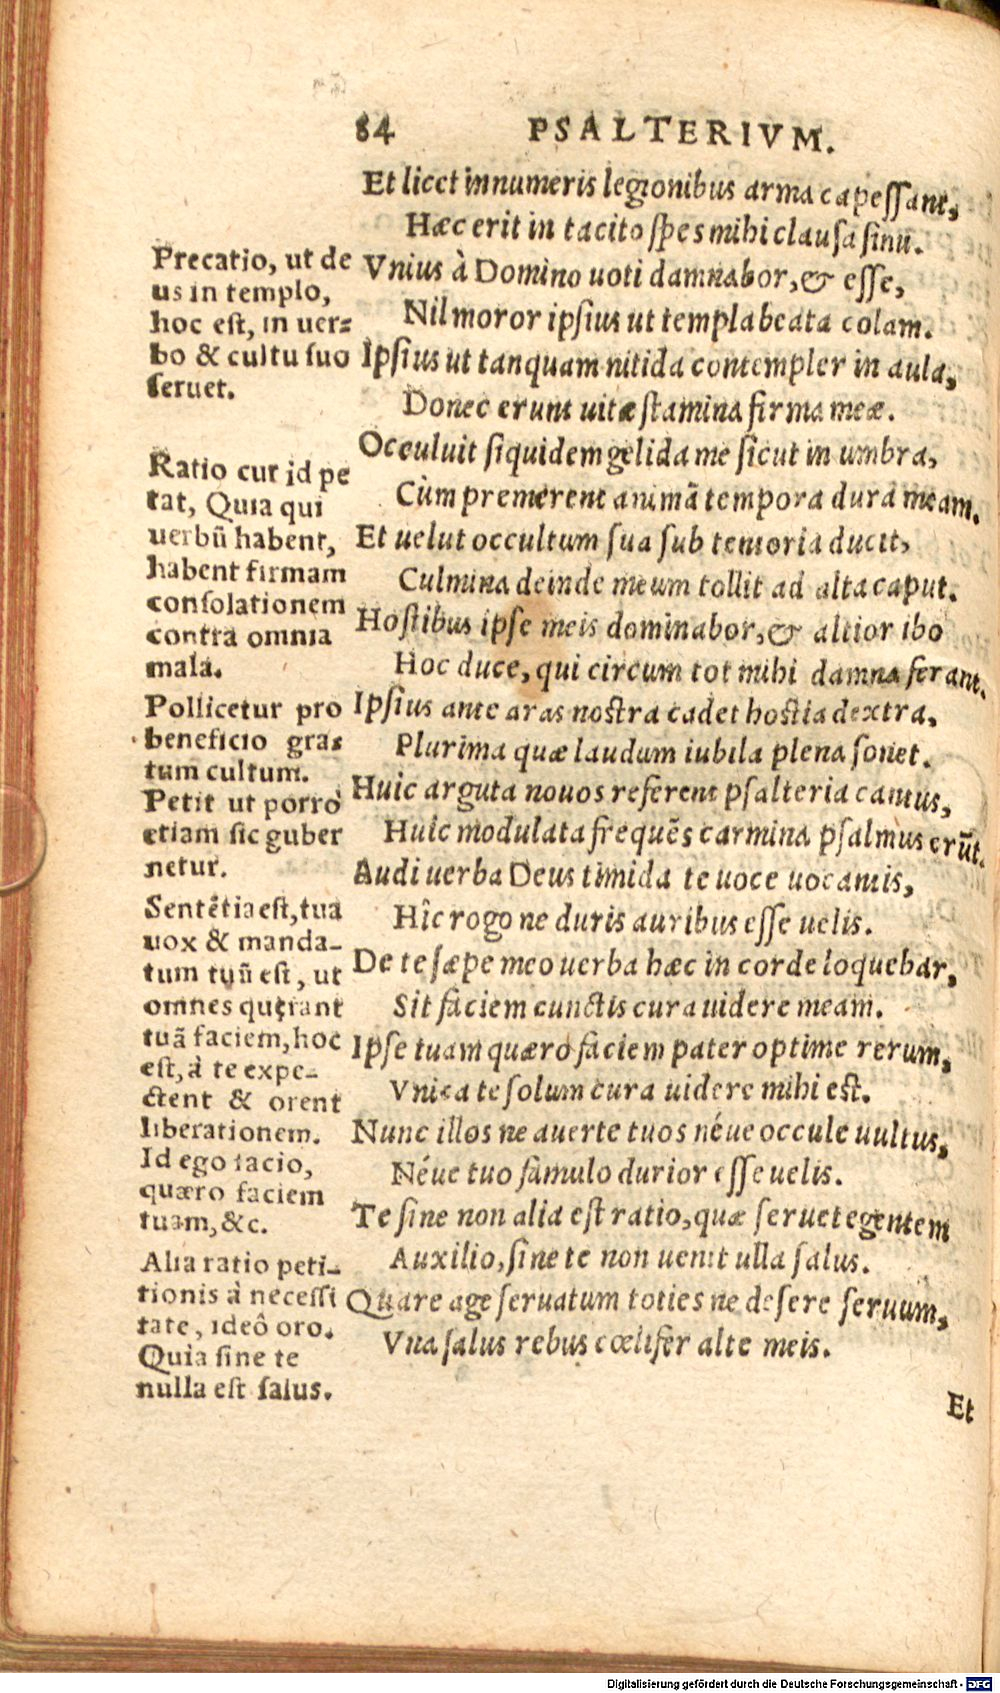 84 PSALTERIVM.
Et licet innumeris legionibus arma capessant,
Hæc erit in tacito spes mihi clausa sinu.
Vnius à Domino uoti damnabor, & esse,
Nil moror ipsius ut templa beata colam.
Ipsius ut tanquam nitida contempler in aula,
Donec erunt uitæ stamina firma meæ.
Occuluit siquidem gelida me sicut in umbra,
Cùm premerent animã tempora dura meam.
Et uelut occultum sua sub tentoria ducit,
Culmina deinde meum tollit ad alta caput.
Hostibus ipse meis dominabor, & altior ibo
Hoc duce, qui circum tot mihi damna ferant.
Ipsius ante aras nostra cadet hostia dextra,
Plurima quæ laudum iubila plena sonet.
Huic arguta nouos referent psalteria cantus,
Huic modulata frequẽs carmina psalmus erũt.
Audi uerba Deus timida te uoce uocantis,
Hîc rogo ne duris auribus esse uelis.
De te sæpe meo uerba hæc in corde loquebar,
Sit faciem cunctis cura uidere meam.
Ipse tuam quæro faciem pater optime rerum,
Vnica te solum cura uidere mihi est.
Nunc illos ne auerte tuos néue occule uultus,
Néue tuo famulo durior esse uelis.
Te sine non alia est ratio, quæ seruet egentem
Auxilio, sine te non uenit ulla salus.
Quare age seruatum toties ne desere seruum,
Vna salus rebus cœlifer alte meis.
Et
Precatio, ut de
us in templo,
hoc est, in uer-
bo & cultu suo
seruet.
Ratio cur id pe
tat, Quia qui
uerbũ habent,
habent firmam
consolationem
contra omnia
mala.
Pollicetur pro
beneficio gra-
tum cultum.
Petit ut porrò
etiam sic guber
netur.
Sentẽtia est, tua
uox & manda-
tum tuũ est, ut
omnes quęrant
tuã faciem, hoc
est, à te expe-
ctent & orent
liberationem.
Id ego facio,
quæro faciem
tuam, &c.
Alia ratio peti-
tionis à necessi
tate, ideô oro.
Quia sine te
nulla est salus.
Digitalisierung gefördert durch die Deutsche Forschungsgemeinschaft - DFG